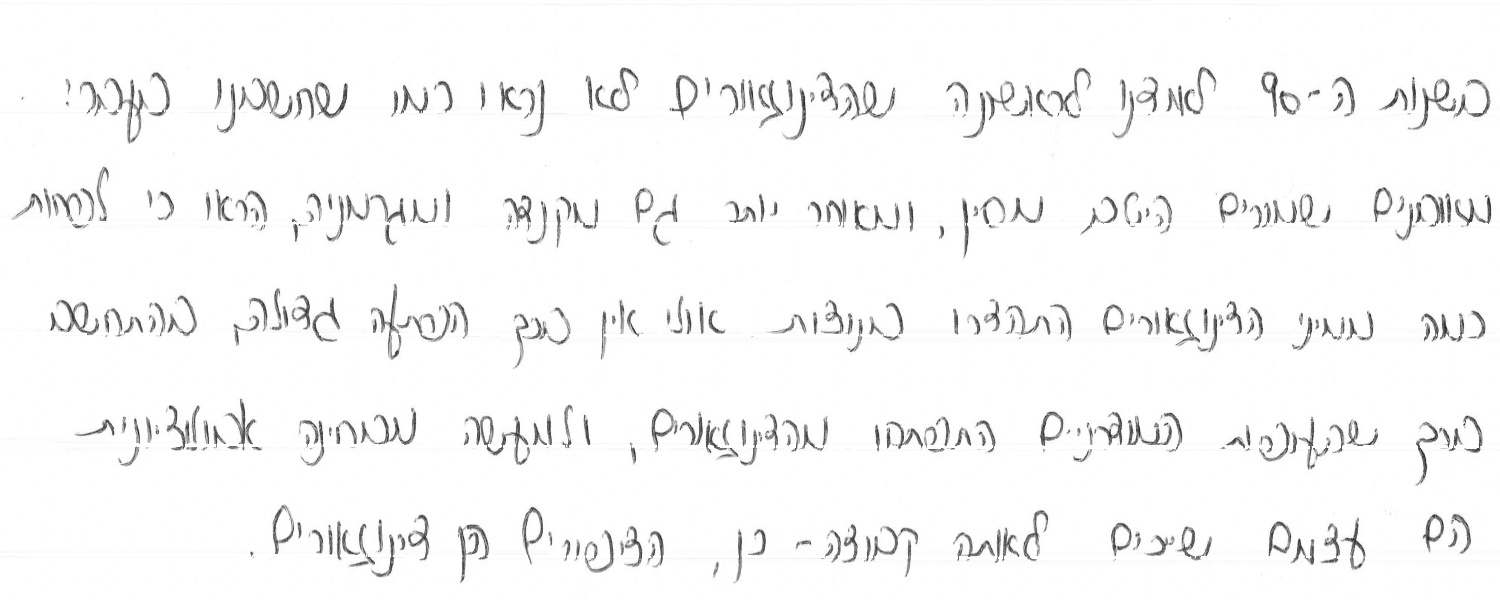 בשנות ה-90 למדנו לראשונה שהדינוזאורים לא נראו כמו שחשבנו בעבר:
מאובנים שמורים היטב מסין, ומאוחר יותר גם מקנדה ומגרמניה, הראו כי לפחות
כמה ממיני הדינוזאורים התהדרו בנוצות אולי אין בכך הפתעה גדולה, בהתחשב
בכך שהעופות המודרניים התפתחו מהדינוזאורים, ולמעשה מבחינה אבולוציונית
הם עצמם שייכים לאותה קבוצה - כן, הציפורים הן דינוזאורים.